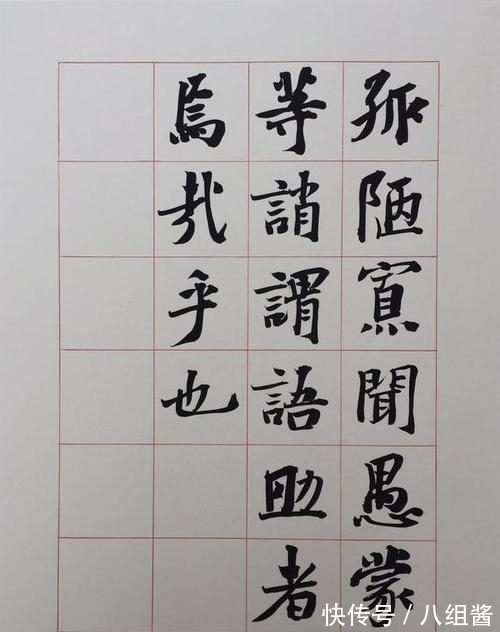 孤陋寡聞愚蒙
等誚謂語助者
焉哉乎也
快传号／八组酱